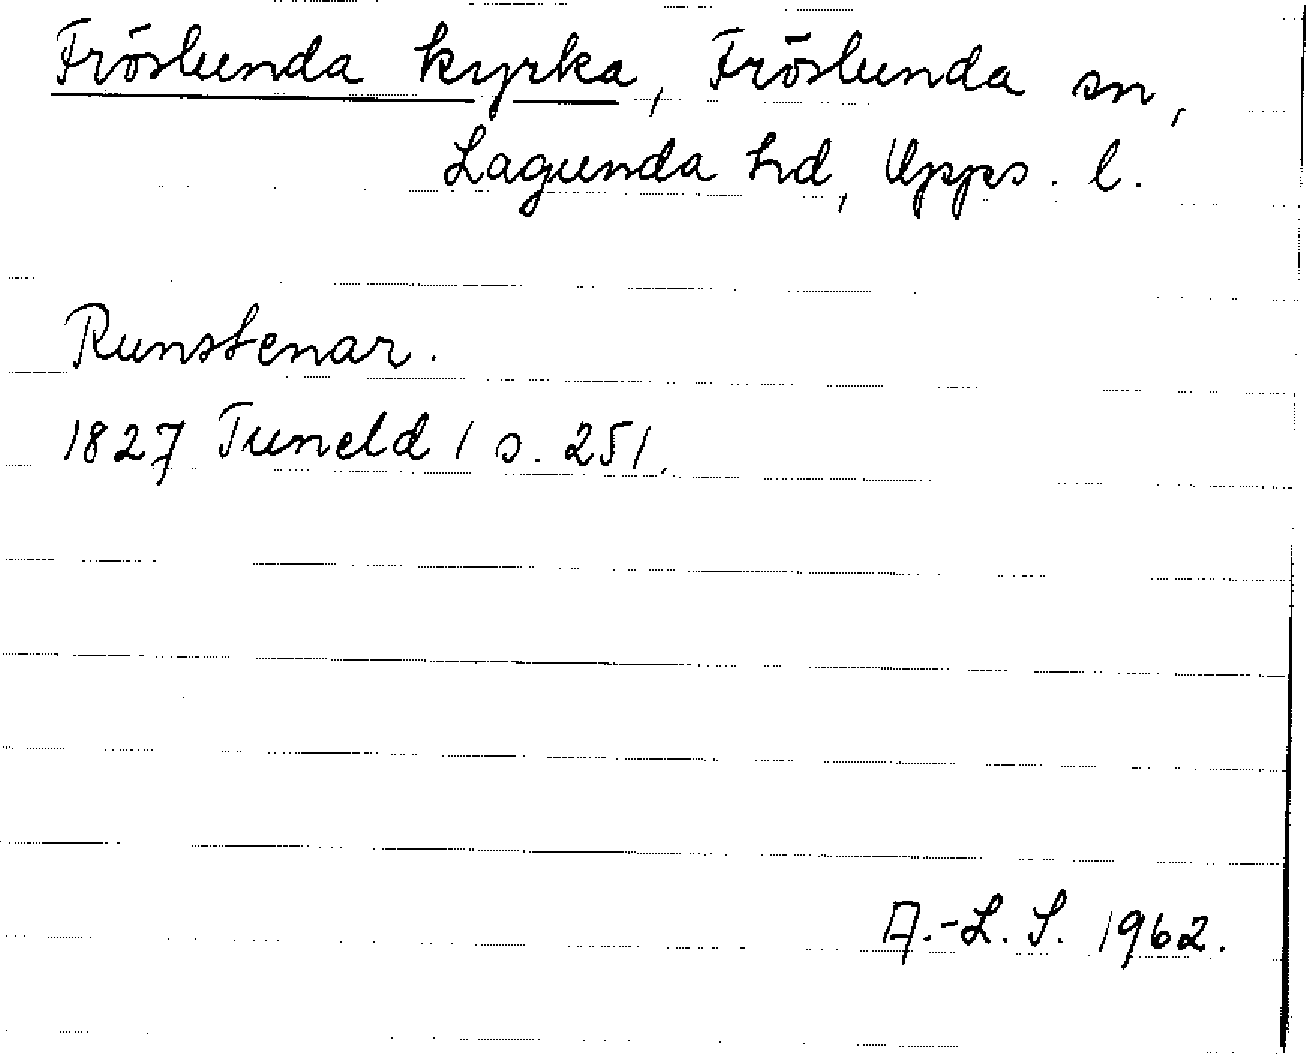 Fröslunda kyrka, Fröslunda sn,
Lagunda hd, Upps. l.
Runstenar.
1827 Tuneld 1 s. 251.
A.-L. S. 1962.